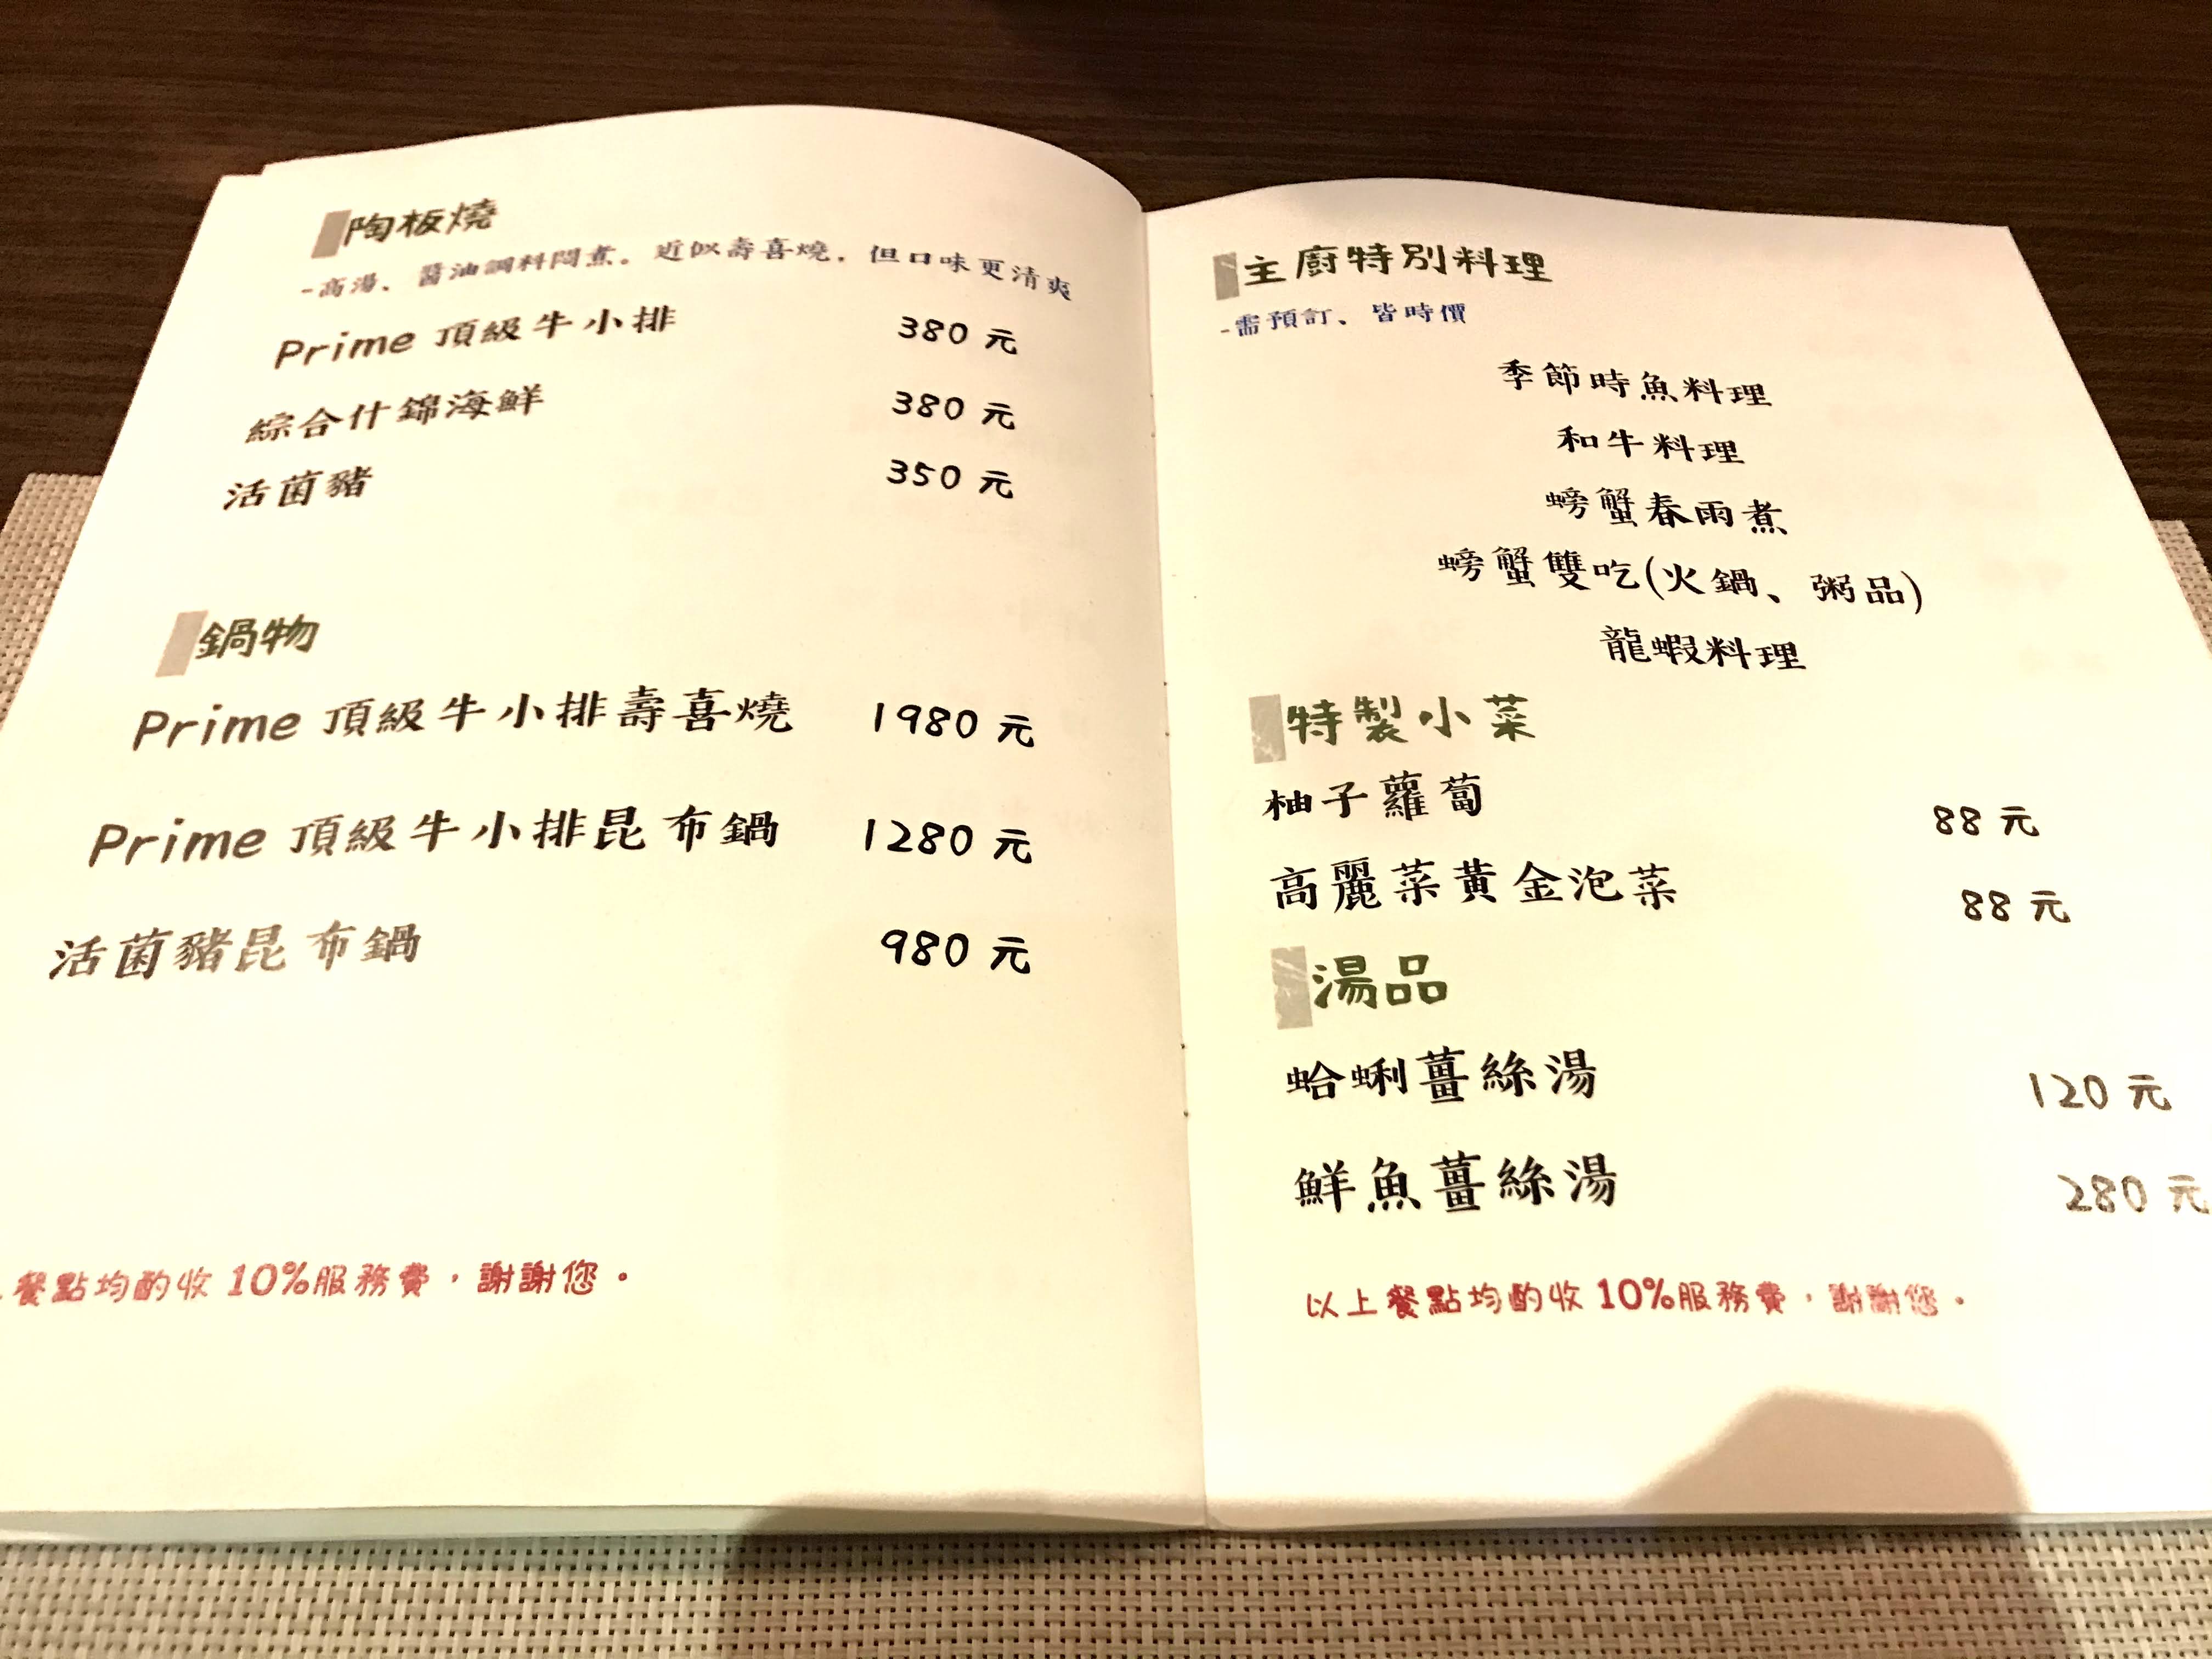 陶板燒
-高湯、醬油調料悶煮。近似壽喜燒，但口味更清爽
Prime 頂級牛小排 380 元
綜合什錦海鮮 380 元
活菌豬 350 元
鍋物
Prime 頂級牛小排壽喜燒 1980 元
Prime 頂級牛小排昆布鍋 1280 元
活菌豬昆布鍋 980 元
餐點均酌收 10%服務費，謝謝您。
主廚特別料理
-需預訂、皆時價
季節時魚料理
和牛料理
螃蟹春雨煮
螃蟹雙吃(火鍋、粥品)
龍蝦料理
特製小菜
柚子蘿蔔 88 元
高麗菜黃金泡菜 88 元
湯品
蛤蜊薑絲湯 120 元
鮮魚薑絲湯 280 元
以上餐點均酌收 10%服務費，謝謝您。